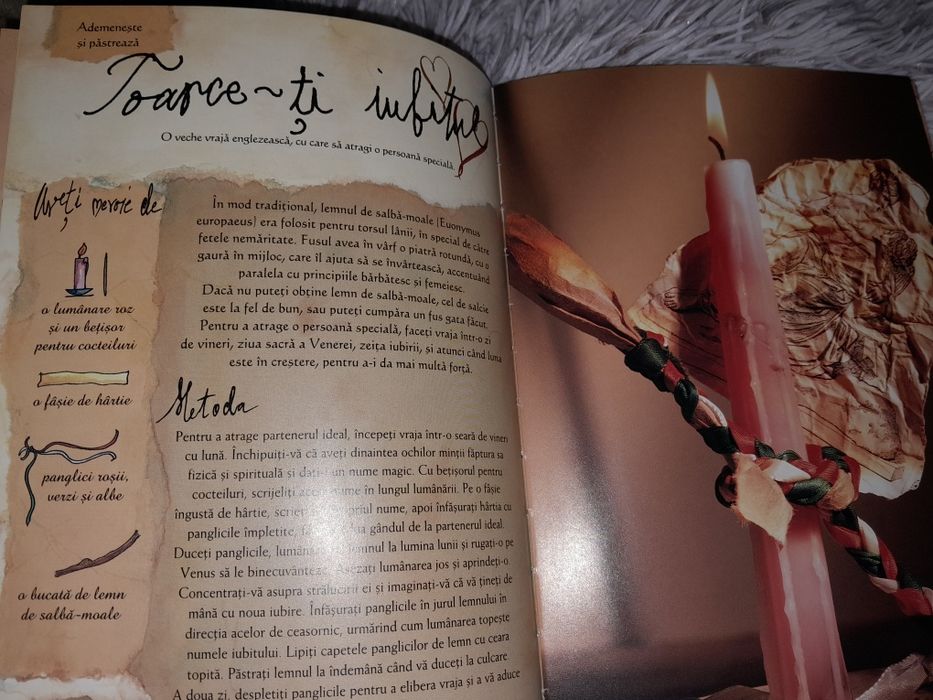 Ademenește
și păstrează
Toarce~ți iubire
O veche vrajă englezească, cu care să atragi o persoană specială.
Aveți nevoie de
o lumânare roz
și un bețișor
pentru cocteiluri
o fâșie de hârtie
panglici roșii,
verzi și albe
o bucată de lemn
de salbă-moale
În mod tradițional, lemnul de salbă-moale [Euonymus
europaeus] era folosit pentru torsul lânii, în special de către
fetele nemăritate. Fusul avea în vârf o piatră rotundă, cu o
gaură în mijloc, care îl ajuta să se învârtească, accentuând
paralela cu principiile bărbătesc și femeiesc.
Dacă nu puteți obține lemn de salbă-moale, cel de salcie
este la fel de bun, sau puteți cumpăra un fus gata făcut.
Pentru a atrage o persoană specială, faceți vraja într-o zi
de vineri, ziua sacră a Venerei, zeița iubirii, și atunci când luna
este în creștere, pentru a-i da mai multă forță.
Metoda
Pentru a atrage partenerul ideal, începeți vraja într-o seară de vineri
cu lună. Închipuiți-vă că aveți dinaintea ochilor minții făptura sa
fizică și spirituală și dați-i un nume magic. Cu bețișorul pentru
cocteiluri, scrijeliți acest nume în lungul lumânării. Pe o fâșie
îngustă de hârtie, scrieți propriul nume, apoi înfășurați hârtia cu
panglicile împletite, gândul de la partenerul ideal.
Duceți panglicile, lumânarea lemnul la lumina lunii și rugați-o pe
Venus să le binecuvânteze. Așezați lumânarea jos și aprindeți-o.
Concentrați-vă asupra strălucirii ei și imaginați-vă că vă țineți de
mână cu noua iubire. Înfășurați panglicile în jurul lemnului în
direcția acelor de ceasornic, urmărind cum lumânarea topește
numele iubitului. Lipiți capetele panglicilor de lemn cu ceara
topită. Păstrați lemnul la îndemână când vă duceți la culcare.
A doua zi, despletiți panglicile pentru a elibera vraja și a vă aduce